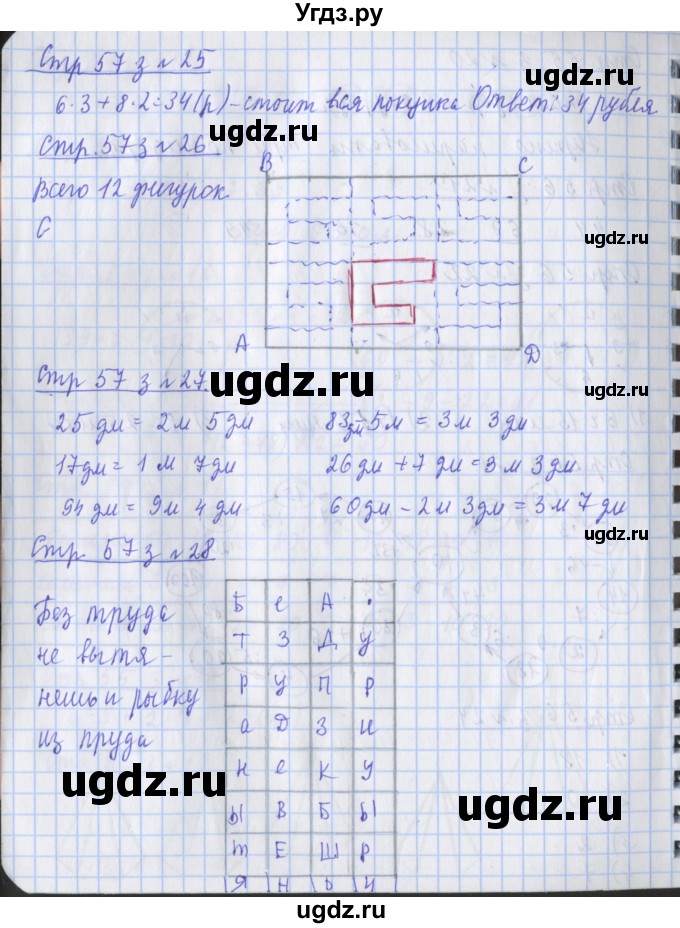 Угдз.ру
Стр 57 з №25
6·3+8·2=34(р)-стоит вся покупка Ответ: 34 рубля
ugdz.ru
Стр. 57 з №26
ugdz.ru
В С
Всего 12 фигурок
С
ugdz.ru
А D
ugdz.ru
Стр 57 з №27
ugdz.ru
25 дм = 2 м 5 дм 83 дм - 5 м = 3 м 3 дм
17 дм = 1 м 7 дм 26 дм + 7 дм = 3 м 3 дм
94 дм = 9 м 4 дм 60 дм - 2 м 3 дм = 3 м 7 дм
ugdz.ru
Стр. 57 з №28
Без труда
не вытя-
нешь и рыбку
из пруда
Б е А .
Т З Д У
Р У П Р
а Д З И
Н е К У
Ы В Б Ы
т Е Ш Р
Я Н Ь И
ugdz.ru
ugdz.ru
ugdz.ru
ugdz.ru
ugdz.ru